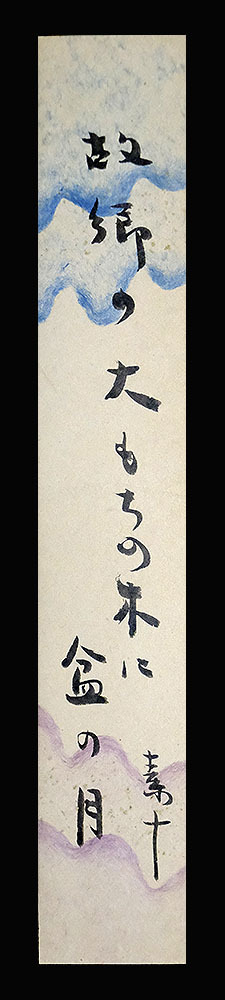 故郷の大もちの木に
盆の月
素十